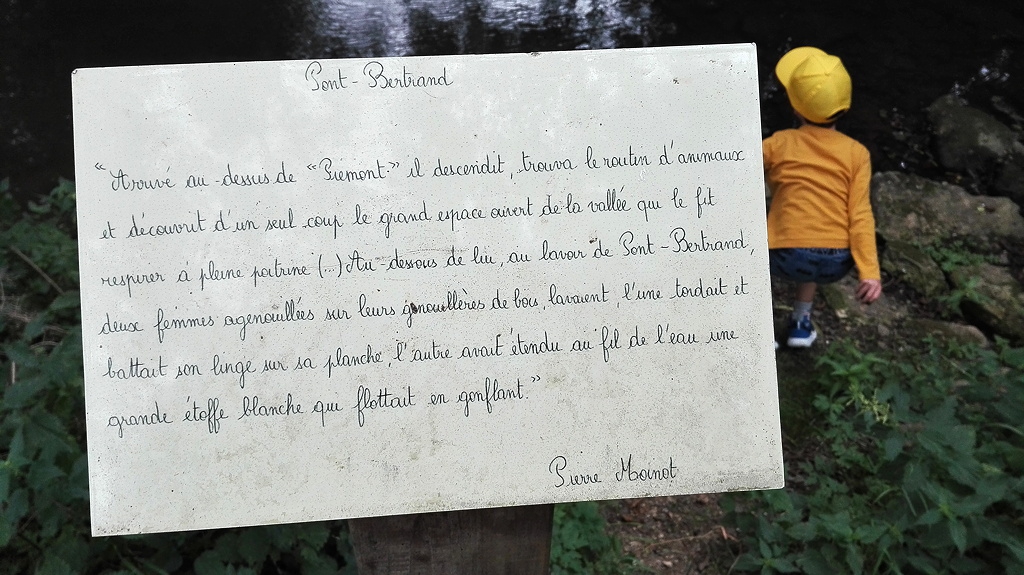 Pont-Bertrand
"Arrivé au-dessus de "Piémont" il descendit, trouva le routin d'animaux
et découvrit d'un seul coup le grand espace ouvert de la vallée qui le fit
respirer à pleine poitrine (...) Au-dessous de lui, au lavoir de Pont-Bertrand,
deux femmes agenouillées sur leurs genouillères de bois, lavaient, l'une tordait et
battait son linge sur sa planche, l'autre avait étendu au fil de l'eau une
grande étoffe blanche qui flottait en gonflant."
Pierre Moinot